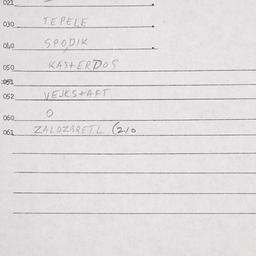 021
030 TEPELE
040 SPODIK
050 KASTERDOS
051
052 VEJKSHAFT
060 O
061 ZALOZBRETL (210